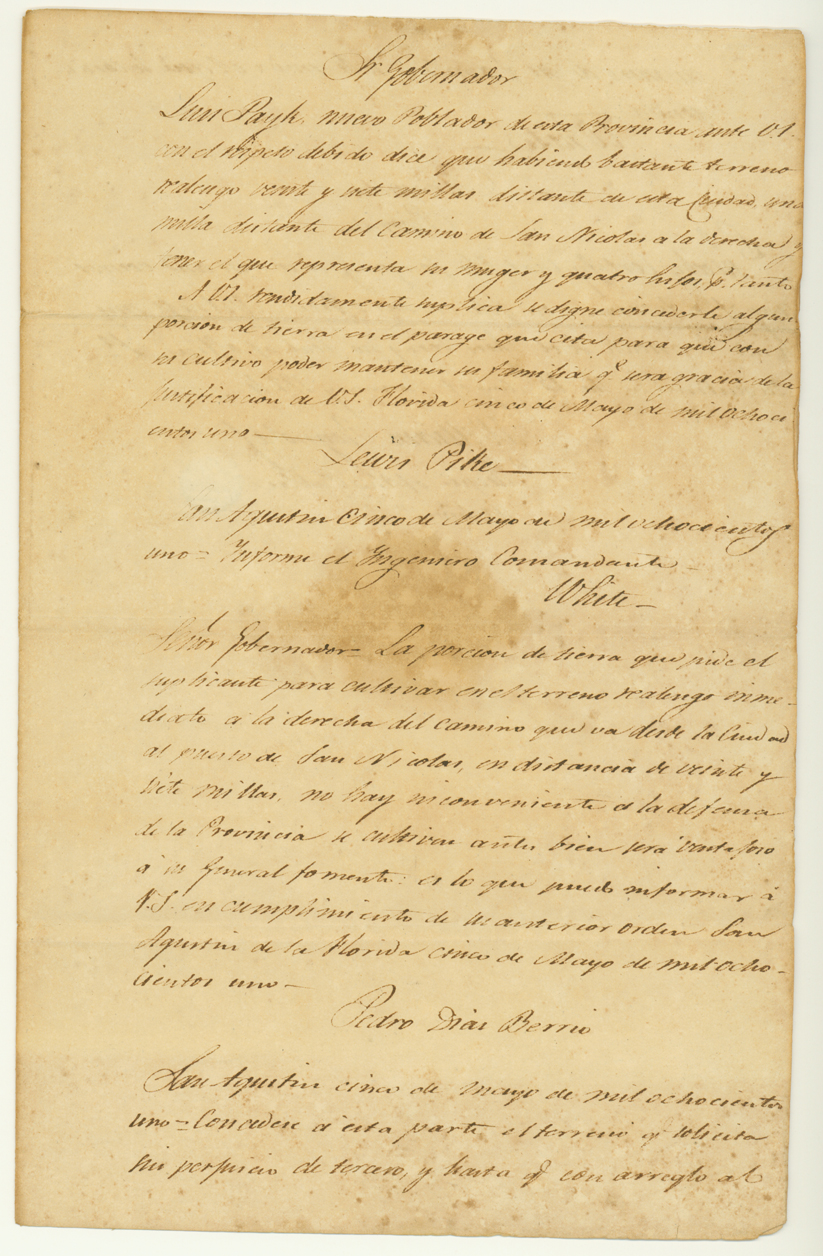 Sr Gobernador
Luis Payk, nuevo Poblador de esta Provincia ante V.S.
con el respeto debido dice que habiend bastante terreno
realengo veinte y siete millas distante de esta Ciudad, una
milla distante del Camino de San Nicolas a la derecha y
tener el que representa su muger y quatro hijos, pr. tanto
A V.S. rendidamente suplica se digne concederle algun
porcion de tierra en el parage que cita para que con
su cultivo poder mantener su familia qe sera gracia de la
justificacion de V.S. Florida cinco de Mayo de mil ochoci
entos uno —
Lewis Pike —
San Agustin Cinco de Mayo de mil ochocientos
uno = Informe el Ingeniero Comandante —
White —
Señor Gobernador = La porcion de tierra que pide el
suplicante para cultivar en el terreno realengo inme-
diato a la derecha del camino que va desde la Ciudad
al puesto de San Nicolas, en distancia de veinte y
siete millas, no hay inconveniente a la defensa
de la Provincia se cultiven antes bien será ventajoso
á su General fomento: es lo que puedo informar á
V.S. en cumplimiento de su anterior orden San
Agustin de la Florida cinco de Mayo de mil ocho-
cientos uno —
Pedro Dias Berrio
San Agustin cinco de mayo de mil ochocientos
uno = Concedese á esta parte el terreno qe solicita
sin perjuicio de tercero, y hasta qe con arreglo al